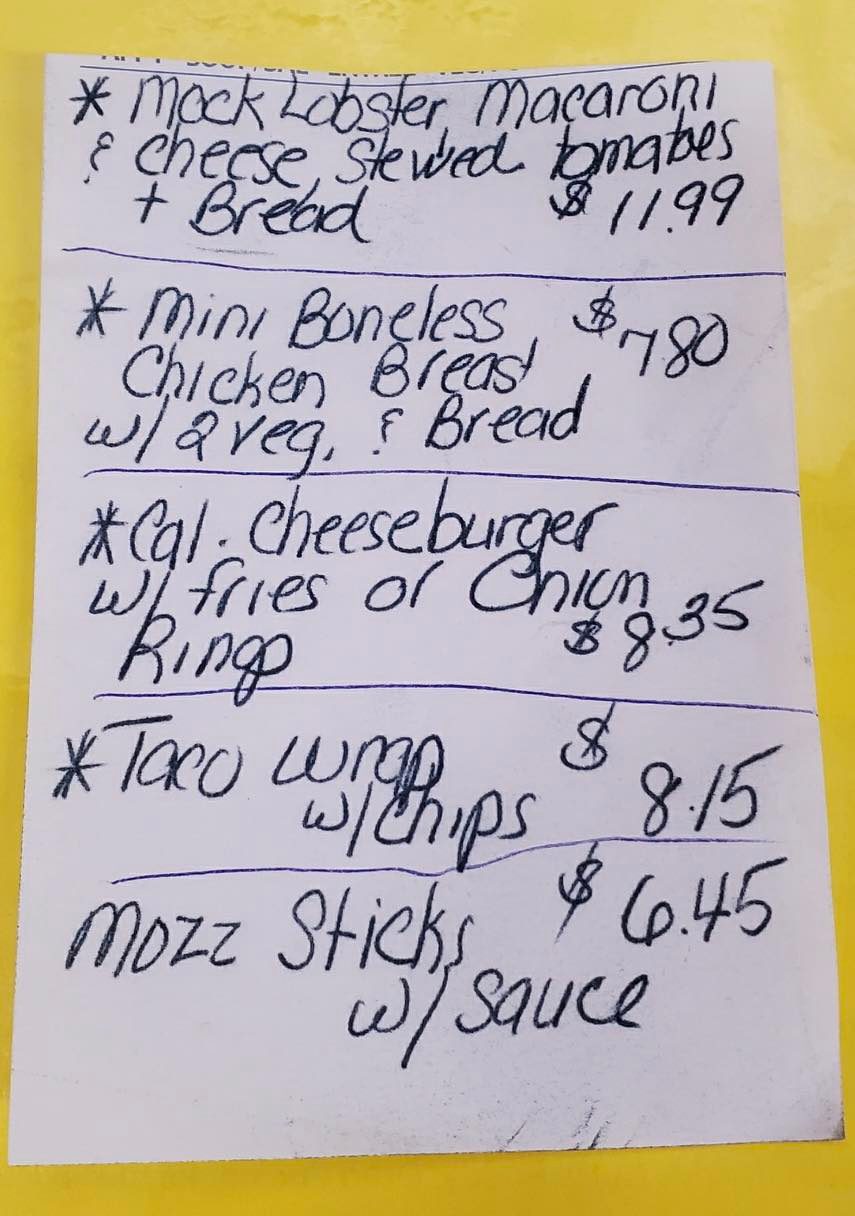 * Mock Lobster Macaroni
& cheese, Stewed tomatoes
+ Bread $11.99
* Mini Boneless $7.80
Chicken Breast
w/ 2 veg. & Bread
* Cal. Cheeseburger
w/ fries or Onion
Rings $8.35
* Taco Wrap $
w/ Chips 8.15
Mozz Sticks $6.45
w/ Sauce